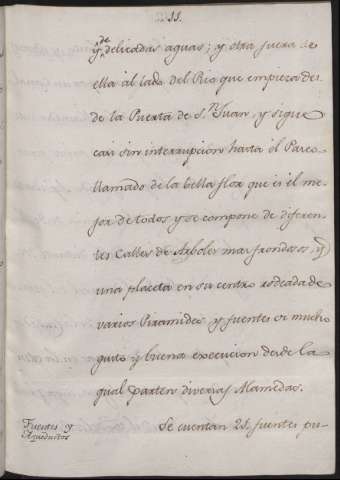 11.
y de delicadas aguas; y otra fuera de
ella al lado del Rio que empieza des
de la Puerta de S.n Juan, y sigue
casi sin interrupcion hasta el Paseo
llamado de la bella flor que es el me-
jor de todos y se compone de diferen-
tes Calles de Arboles mas frondosos, y
una placeta en su centro rodeada de
varios Piramides y fuentes de mucho
gusto y buena execucion desde la
qual parten diversas Alamedas.
Fuentes y
Aqueductos
Se cuentan 25. fuentes pu-